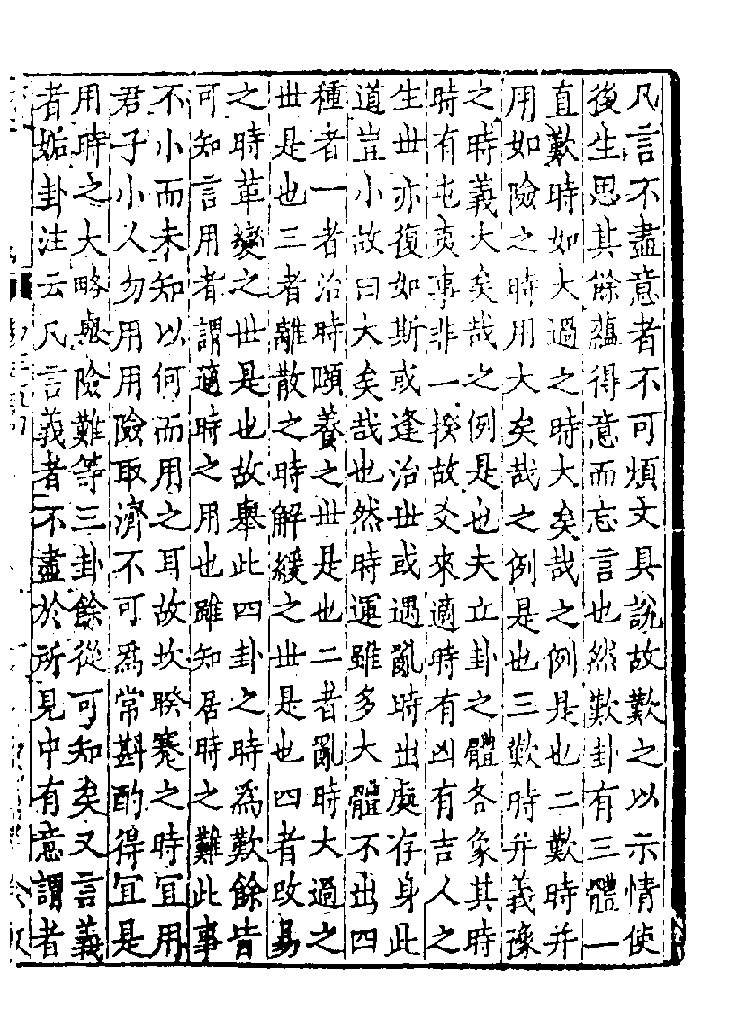 凡言不盡意者不可煩文具說故歎之以示情使
後生思其餘蘊得意而忘言也然歎卦有三體一
直歎時如大過之時大矣哉之例是也二歎時并
用如險之時用大矣哉之例是也三歎時并義豫
之時義大矣哉之例是也夫立卦之體各象其時
時有屯夷事非一揆故爻來適時有凶有吉人之
生世亦復如斯或逢治世或遇亂時出處存身此
道豈小故曰大矣哉也然時運雖多大體不出四
種者一者治時頤養之世是也二者亂時大過之
世是也三者離散之時解緩之世是也四者改易
之時革變之世是也故舉此四卦之時爲歎餘皆
可知言用者謂適時之用也雖知居時之難此事
不小而未知以何而用之耳故坎睽蹇之時宜用
君子小人勿用用險取濟不可爲常斟酌得宜是
用時之大略與險難等三卦餘從可知矣又言義
者姤卦注云凡言義者不盡於所見中有意謂者